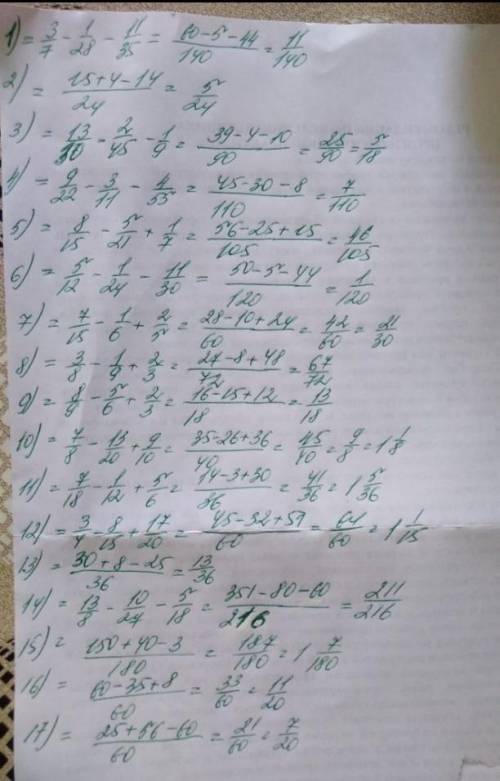 1) = 3/7 - 1/28 - 11/35 = 60-5-44/140 = 11/140
2) = 15+4-14/24 = 5/24
3) = 13/30 - 2/45 - 1/9 = 39-4-10/90 = 25/90 = 5/18
4) = 9/22 - 3/11 - 4/55 = 45-30-8/110 = 7/110
5) = 8/15 - 5/21 + 1/7 = 56-25+15/105 = 46/105
6) = 5/12 - 1/24 - 11/30 = 50-5-44/120 = 1/120
7) = 7/15 - 1/6 + 2/5 = 28-10+24/60 = 42/60 = 21/30
8) = 3/8 - 1/9 + 2/3 = 27-8+48/72 = 67/72
9) = 8/9 - 5/6 + 2/3 = 16-15+12/18 = 13/18
10) = 7/8 - 13/20 + 9/10 = 35-26+36/40 = 45/40 = 9/8 = 1 1/8
11) = 7/18 - 1/12 + 5/6 = 14-3+30/36 = 41/36 = 1 5/36
12) = 3/4 - 8/15 + 17/20 = 45-32+51/60 = 64/60 = 1 1/15
13) = 30+8-25/36 = 13/36
14) = 13/8 - 10/24 - 5/18 = 351-80-60/216 = 211/216
15) = 150+40-3/180 = 187/180 = 1 7/180
16) = 60-35+8/60 = 33/60 = 11/20
17) = 25+56-60/60 = 21/60 = 7/20